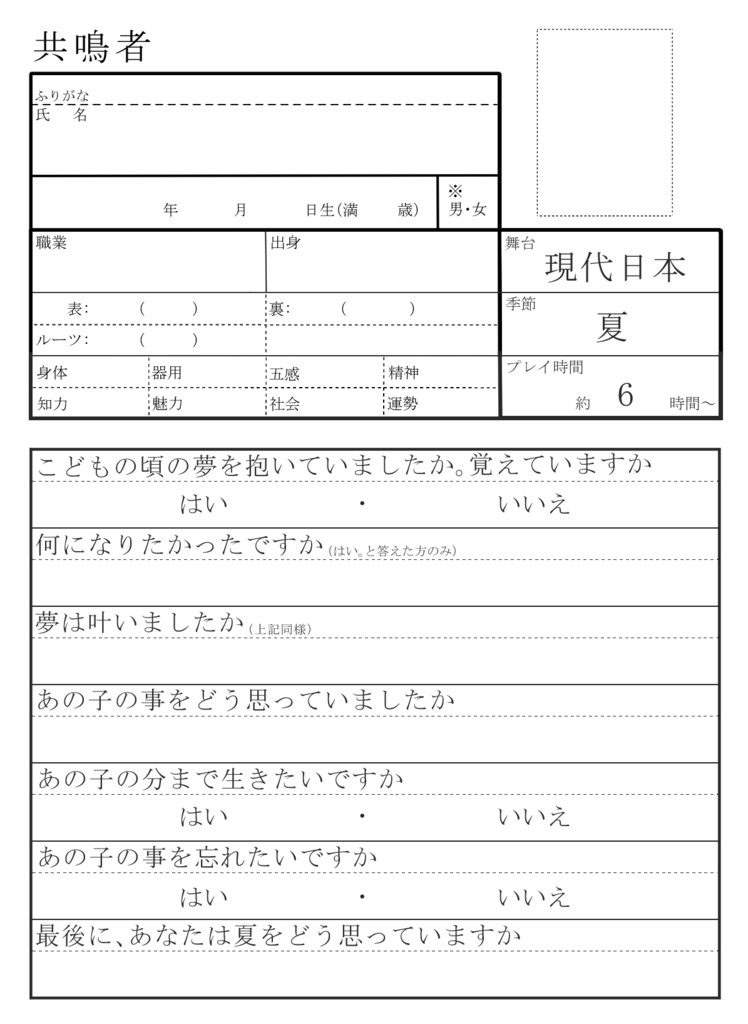 共鳴者
ふりがな
氏 名
年 月 日生(満 歳)
※
男・女
職業
出身
舞台
現代日本
表: ( )
裏: ( )
季節
夏
ルーツ: ( )
身体 器用 五感 精神
知力 魅力 社会 運勢
プレイ時間
約 6 時間～
こどもの頃の夢を抱いていましたか。覚えていますか
はい ・ いいえ
何になりたかったですか(はい。と答えた方のみ)
夢は叶いましたか(上記同様)
あの子の事をどう思っていましたか
あの子の分まで生きたいですか
はい ・ いいえ
あの子の事を忘れたいですか
はい ・ いいえ
最後に、あなたは夏をどう思っていますか